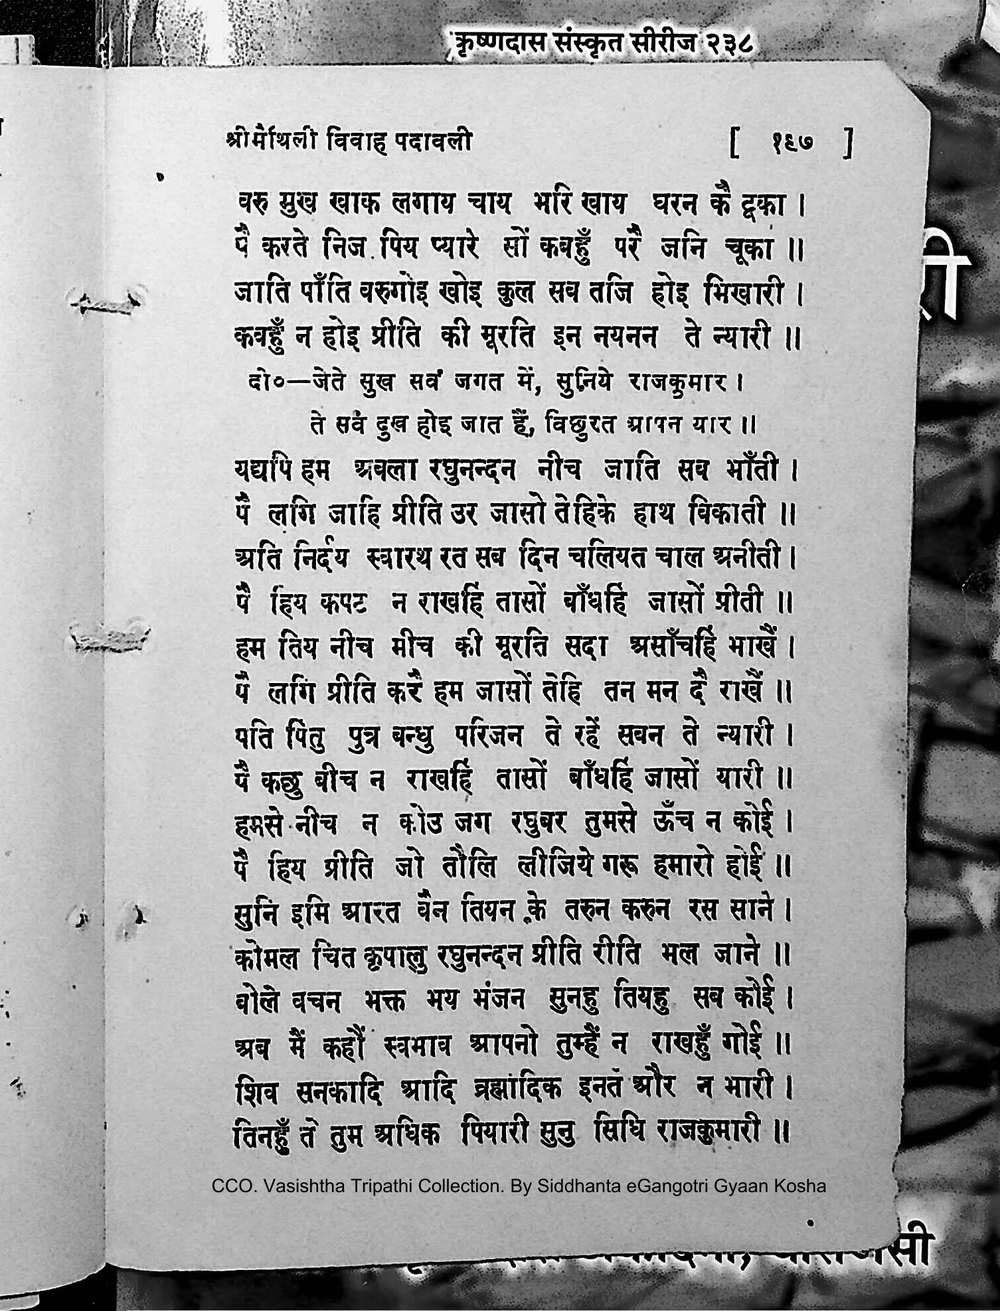 कृष्णदास संस्कृत सीरीज २३८
श्रीमैथिली विवाह पदावली [ १९७ ]
वरु सुख खाक लगाय चाय भरि खाय घरन कै टूका ।
पै करते निज पिय प्यारे सों कबहुँ परै जनि चूका ॥
जाति पाँति वरुगोइ खोइ कुल सब तजि होइ भिखारी ।
कबहुँ न होइ प्रीति की मूरति इन नयनन ते न्यारी ॥
दो०—जेते सुख सर्व जगत में, सुनिये राजकुमार ।
ते सर्व दुख होइ जात हैं, विछुरत आपन यार ॥
यद्यपि हम अबला रघुनन्दन नीच जाति सब भाँती ।
पै लगि जाहि प्रीति उर जासो तेहिके हाथ बिकाती ॥
अति निर्दय स्वारथ रत सब दिन चलियत चाल अनीती ।
पै हिय कपट न राखहिं तासों बाँधहिं जासों प्रीती ॥
हम तिय नीच मीच की मूरति सदा असाँचहिं भाखैं ।
पै लगि प्रीति करैं हम जासों तेहि तन मन दै राखैं ॥
पति पितु पुत्र बन्धु परिजन ते रहें सबन ते न्यारी ।
पै कछु बीच न राखहिं तासों बाँधहिं जासों यारी ॥
हमसे नीच न कोउ जग रघुबर तुमसे ऊँच न कोई ।
पै हिय प्रीति जो तौलि लीजिये गरू हमारो होई ॥
सुनि इमि आरत बैन तियन के तरुन करुन रस साने ।
कोमल चित कृपालु रघुनन्दन प्रीति रीति भल जाने ॥
बोले वचन भक्त भय भंजन सुनहु तियहु सब कोई ।
अब मैं कहौं स्वभाव आपनो तुम्हैं न राखहुँ गोई ॥
शिव सनकादि आदि ब्रह्मादिक इनतं और न भारी ।
तिनहुँ ते तुम अधिक पियारी सुनु सिधि राजकुमारी ॥
CCO. Vasishtha Tripathi Collection. By Siddhanta eGangotri Gyaan Kosha